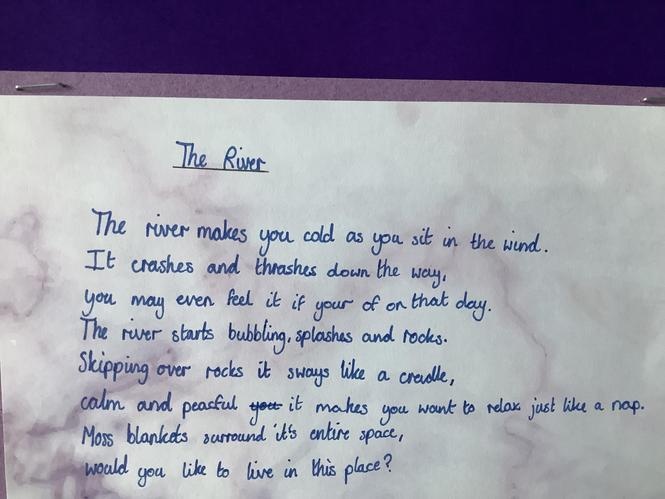 The River
The river makes you cold as you sit in the wind.
It crashes and thrashes down the way,
you may even feel it if your of on that day.
The river starts bubbling, splashes and rocks.
Skipping over rocks it sways like a cradle,
calm and peacful you it makes you want to relax just like a nap.
Moss blankets surround it's entire space,
would you like to live in this place?